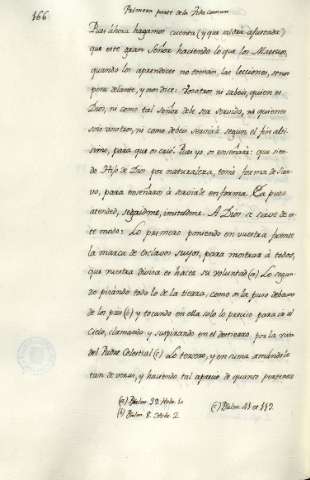 166
Primera parte de la Vida comun
Pues ahora hagamos cuenta (y que estara ajustada)
que este gran Señor haciendo lo que los Maestros,
quando los aprendices no toman las lecciones, se nos
pone delante, y nos dice: Vosotros ni sabeis, quien es
Dios, ni como tal Señor debe ser servido, ni quienes
sois vosotros, ni como debeis servirle segun el fin alti-
simo, para que os crió. Pues yo os enseñaré: que sien-
do Hijo de Dios por naturaleza, tomé forma de Sier-
vo, para enseñaros á servirle en forma. Ea pues
atended, seguidme, imitadme. A Dios se sirve de es-
te modo: Lo primero poniendo en vuestra frente
la marca de Esclavos suyos, para mostrar á todos,
que vuestra divisa es hacer su voluntad (a) Lo segun-
do pisando todo lo de la tierra, como si la puso debaxo
de los pies (b) y tocando en ella solo lo preciso para ir al
Cielo, clamando y suspirando en el destierro por la vista
del Padre Celestial (c) Lo tercero, y en suma amandole
tan de veras, y haciendo tal aprecio de quanto pertenece
(a) Psalm. 39. Hebr. 10
(b) Psalm. 8. Hebr. 2.
(c) Psalm. 41 et 119.